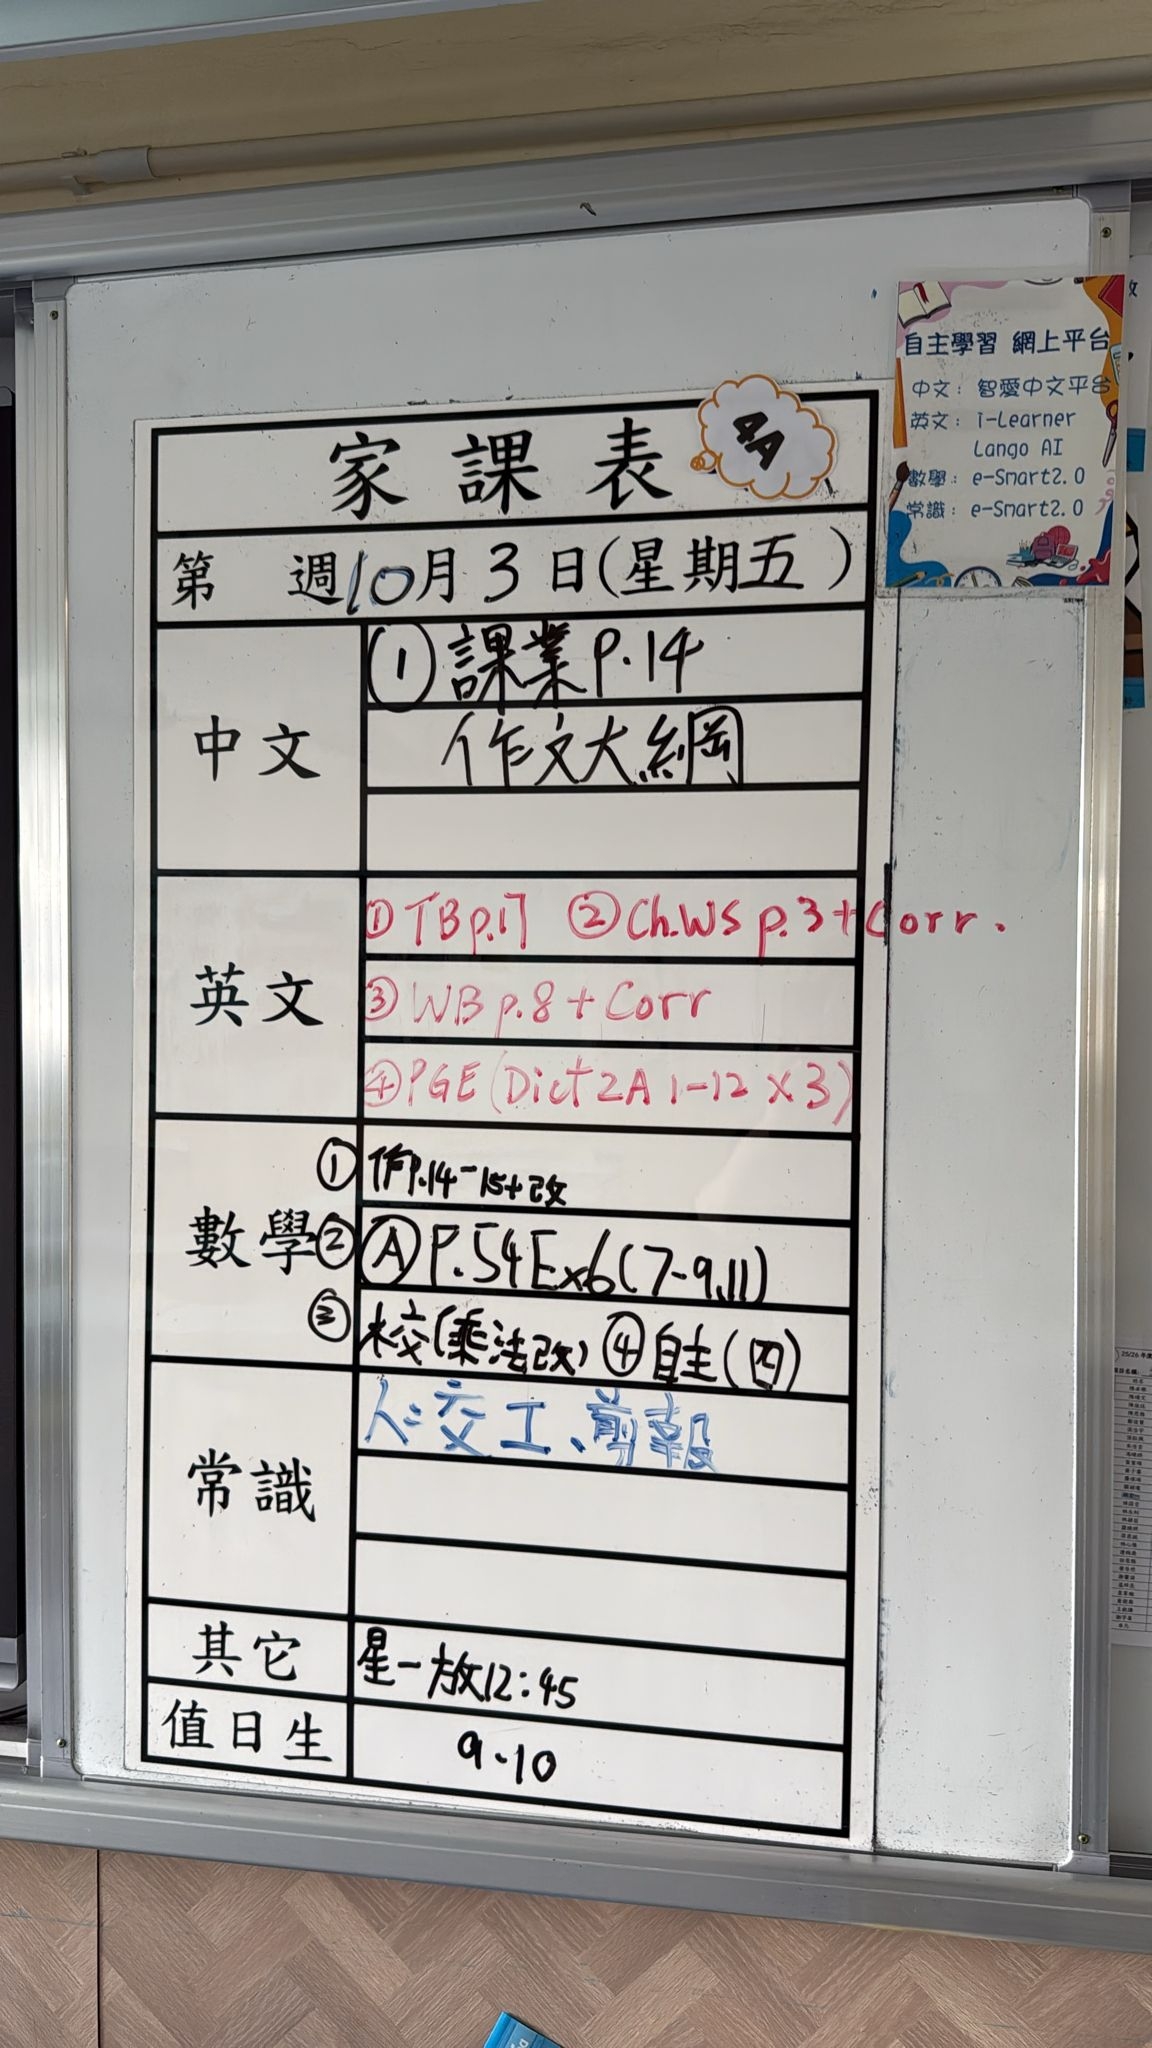 自主學習 網上平台
中文：智愛中文平台
英文：i-Learner
Lango AI
數學：e-Smart2.0
常識：e-Smart2.0
家課表
4A
第 週10月3日(星期五)
中文
①課業P.14
作文大綱
英文
①TB p.17 ②Ch.WS p.3+Corr.
③WB p.8+Corr
④PGE(Dict 2A 1-12 x 3)
數學
①作P.14-15+改
②Ⓐ P.54 Ex6(7-9,11)
③校(乘法改) ④自主(四)
常識
人:交工、剪報
其它
星一放12:45
值日生
9.10
25/26年度